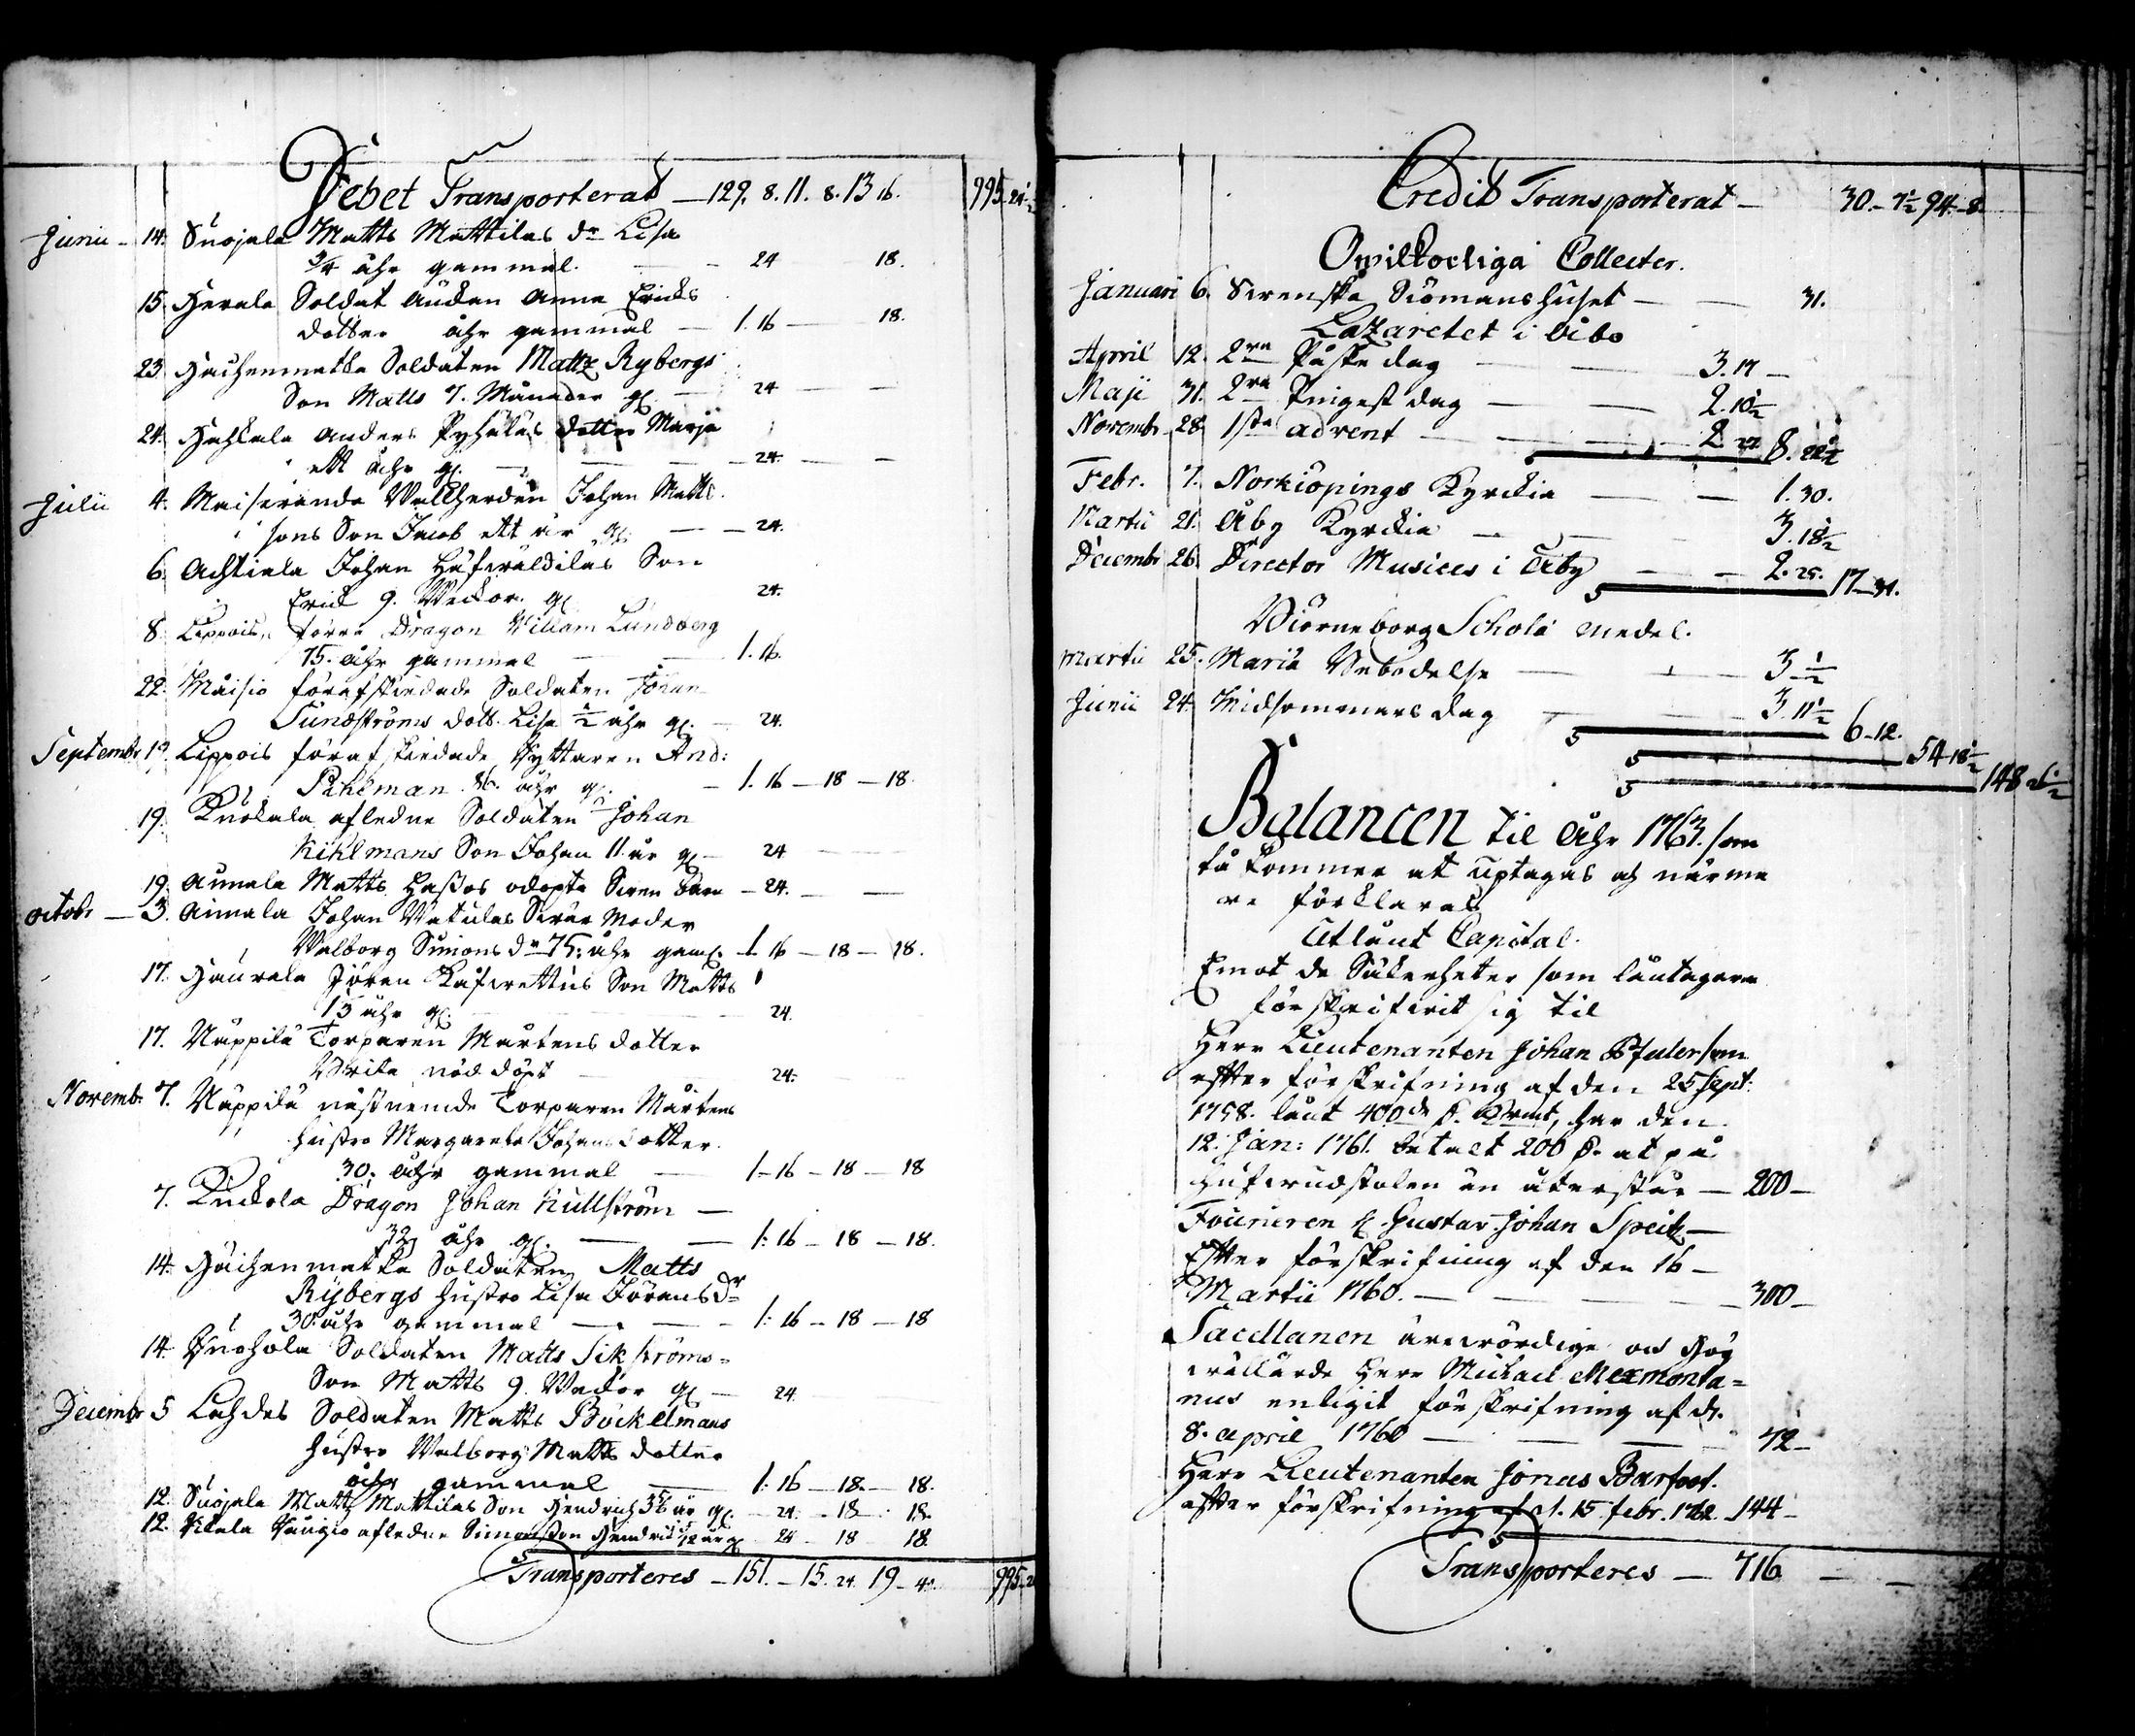 Debet Transporterat — 129. 8. 11. 8. 13 16. 995. 21½
Junii — 14. Suojala Matts Mattilas dr Lisa
3/4 åhr gammal. — 24 18.
15. Herala Soldat Änckan Anna Ericks
dotter åhr gammal — 1. 16 — 18.
23. Haihenmatka Soldaten Matts Rybergs
Son Matts 7. Månader gl. — 24 — —
24. Hahkala Anders dotter Marja
ett åhr gl. — — 24. — —
Julii 4. Vallherden Johan Matts
sons Son Jacob ett år gl. — 24.
6. Achtiala Johan Son
Erick 9. Veckor gl. 24.
8. Lippois, förre Dragon Villiam Lundberg
75. åhr gammal — 1. 16.
22. Maisio förafskiedade Soldaten Johan
Sundströms dott. Lisa ½ åhr gl. — 24.
Septembr 19. Lippois förafskiedade Ryttaren And:
Pihlman 86. åhr gl. — 1. 16 — 18 — 18.
19. Kuokala afledne Soldaten Johan
Kihlmans Son Johan 11. år gl — 24 — —
19. Aunala Matts odöpta Swen barn — 24. — —
octobr — 3. Aimala Johan Swär Moder
Valborg Simons dr 75: åhr gaml. — 1. 16 — 18 — 18.
17. Haurala Jören Son Matts
15 åhr gl. 24.
17. Näppilä Torparen Mårtens dotter
Brita nöd döpt — 24.
Novemb. 7. Näppilä näst nemde Torparen Mårtens
hustro Margareta Johans dotter
30. åhr gammal — 1 — 16 — 18 — 18
7. Kuckola Dragon Johan Kullström —
32 åhr gl. — — 1: 16 — 18 — 18.
14. Haihenmatka Soldaten Matts
Rybergs hustro Lisa Jörens Dr
30. åhr gammal — — 1: 16 — 18 — 18
14. Soldaten Matts Sikströms
Son Matts 9. Veckor gl — 24.
Decembr 5 Lahdes Soldaten Matts Böckelmans
hustro Valborg Matts dotter
åhr gammal — 1: 16 — 18. — 18.
12. Suojala Matts Mattilas Son Hendrich år gl. — 24. — 18 — 18.
12. afledne Simon Son Hendrich år gl 24 — 18 — 18.
Transporteres — 151. — 15. 24. 19 — 4. 995. 2
Credit Transporterat — 30. — 7½ 94. — 8.
Owilkorliga Collecter.
Januari 6. Swenska Siömanshuset — — 31.
Lazarettet i Åbo
April 12. 2ra Påskedag — — 3. 17 —
Maji 31. 2ra Pingestdag — — 2. 10½
Novembr 28. 1sta advent — — 2. 27 8. 22½
Febr. 7. Norkiöpings Kyrckia — — 1. 30.
Martii 21. Åby Kyrckia — — 3. 18½
Decembr 26. Director Musices i Åby — — 2. 25. 17 — 31.
Biörneborg Schola medel.
Martii 25. Mariä Bebodelse — — 3 ½
Junii 24. Midsommars dag — 3. 11½
6 — 12.
54 18½
148 26½
Balancen til Åhr 1763. som
då kommer at uptagas och närma
re förklaras
Utlånt Capital.
Emot de Säkerheter som låntagarne
förskrifwit sig til
Herr Lieutenanten Johan Pfaler som
efter förskrifning af den 25 Sept:
1758. lånt 400 dr K. Kmt, har den
12. Jan: 1761. betalt 200 D. at på
hufwudstolen än återstår — 200 —
Foureren H. Gustav Johan Speitz —
Efter förskrifning af den 16 —
Martii 1760. — — — 300 —
Sacellanen ärewördige och Hög
wällärde Herr Michael Mexmonta=
nus enligit förskrifning af d.
8. april 1760 — — — 72 —
Herr Lieutenanten Jonas Barfoot.
efter förskrifning af d. 15. febr. 1762. 144 —
Transporteres — 716 — —